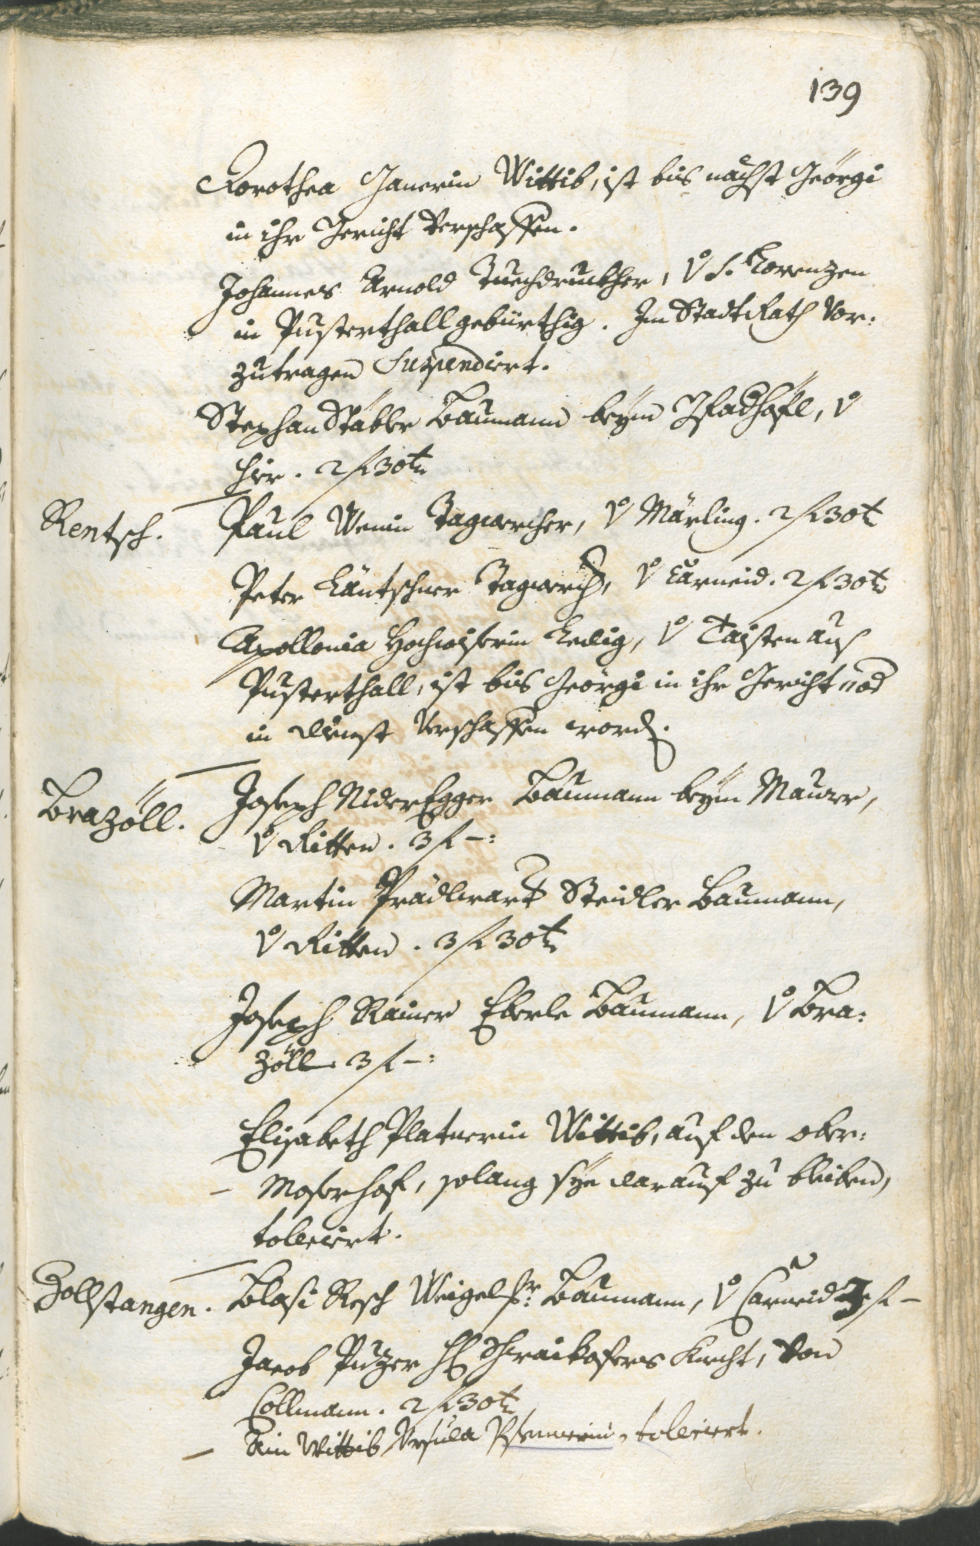 139
Dorothea Janerin Wittib, ist bis nächst Geörgi
in ihr Gericht verschaffen.
Johannes Arnold Tuechdruckher, v S. Lorenzen
in Pusterthall gebürthig. Im Stadt Rath vor:
zutragen Suspendiert.
Stephan Stäbler Baumann beym, v
hier. 2 f 30 x
Rentsch. Paul Wenin Tagwercher, v Märling. 2 f 30 x
Peter Läntschner Tagwerch, v Carneid. 2 f 30 x
Apollonia Hochwiserin Ledig, v Taisten aus
Pusterthall, ist bis Geörgi in ihr Gericht od
in dienst verschaffen word.
Brazöll. Joseph NiderEgger Baumann beym Maurer,
v Ritten. 3 f –:
Martin Prädlwart Steidler Baumann,
v Ritten. 3 f 30 x
Joseph Rainer Eberle Baumann, v Bra:
zöll 3 f –:
Elisabeth Platnerin Wittib, auf den ober:
– Moserhof, solang sye darauf zu bleiben,
tolleriert.
Zollstangen. Blasi Resch Baumann, v Carneid 3 f –
Jacob Puzer Knecht, von
Collmann. 2 f 30 x
– Ein Wittib Ursula tolleriert.